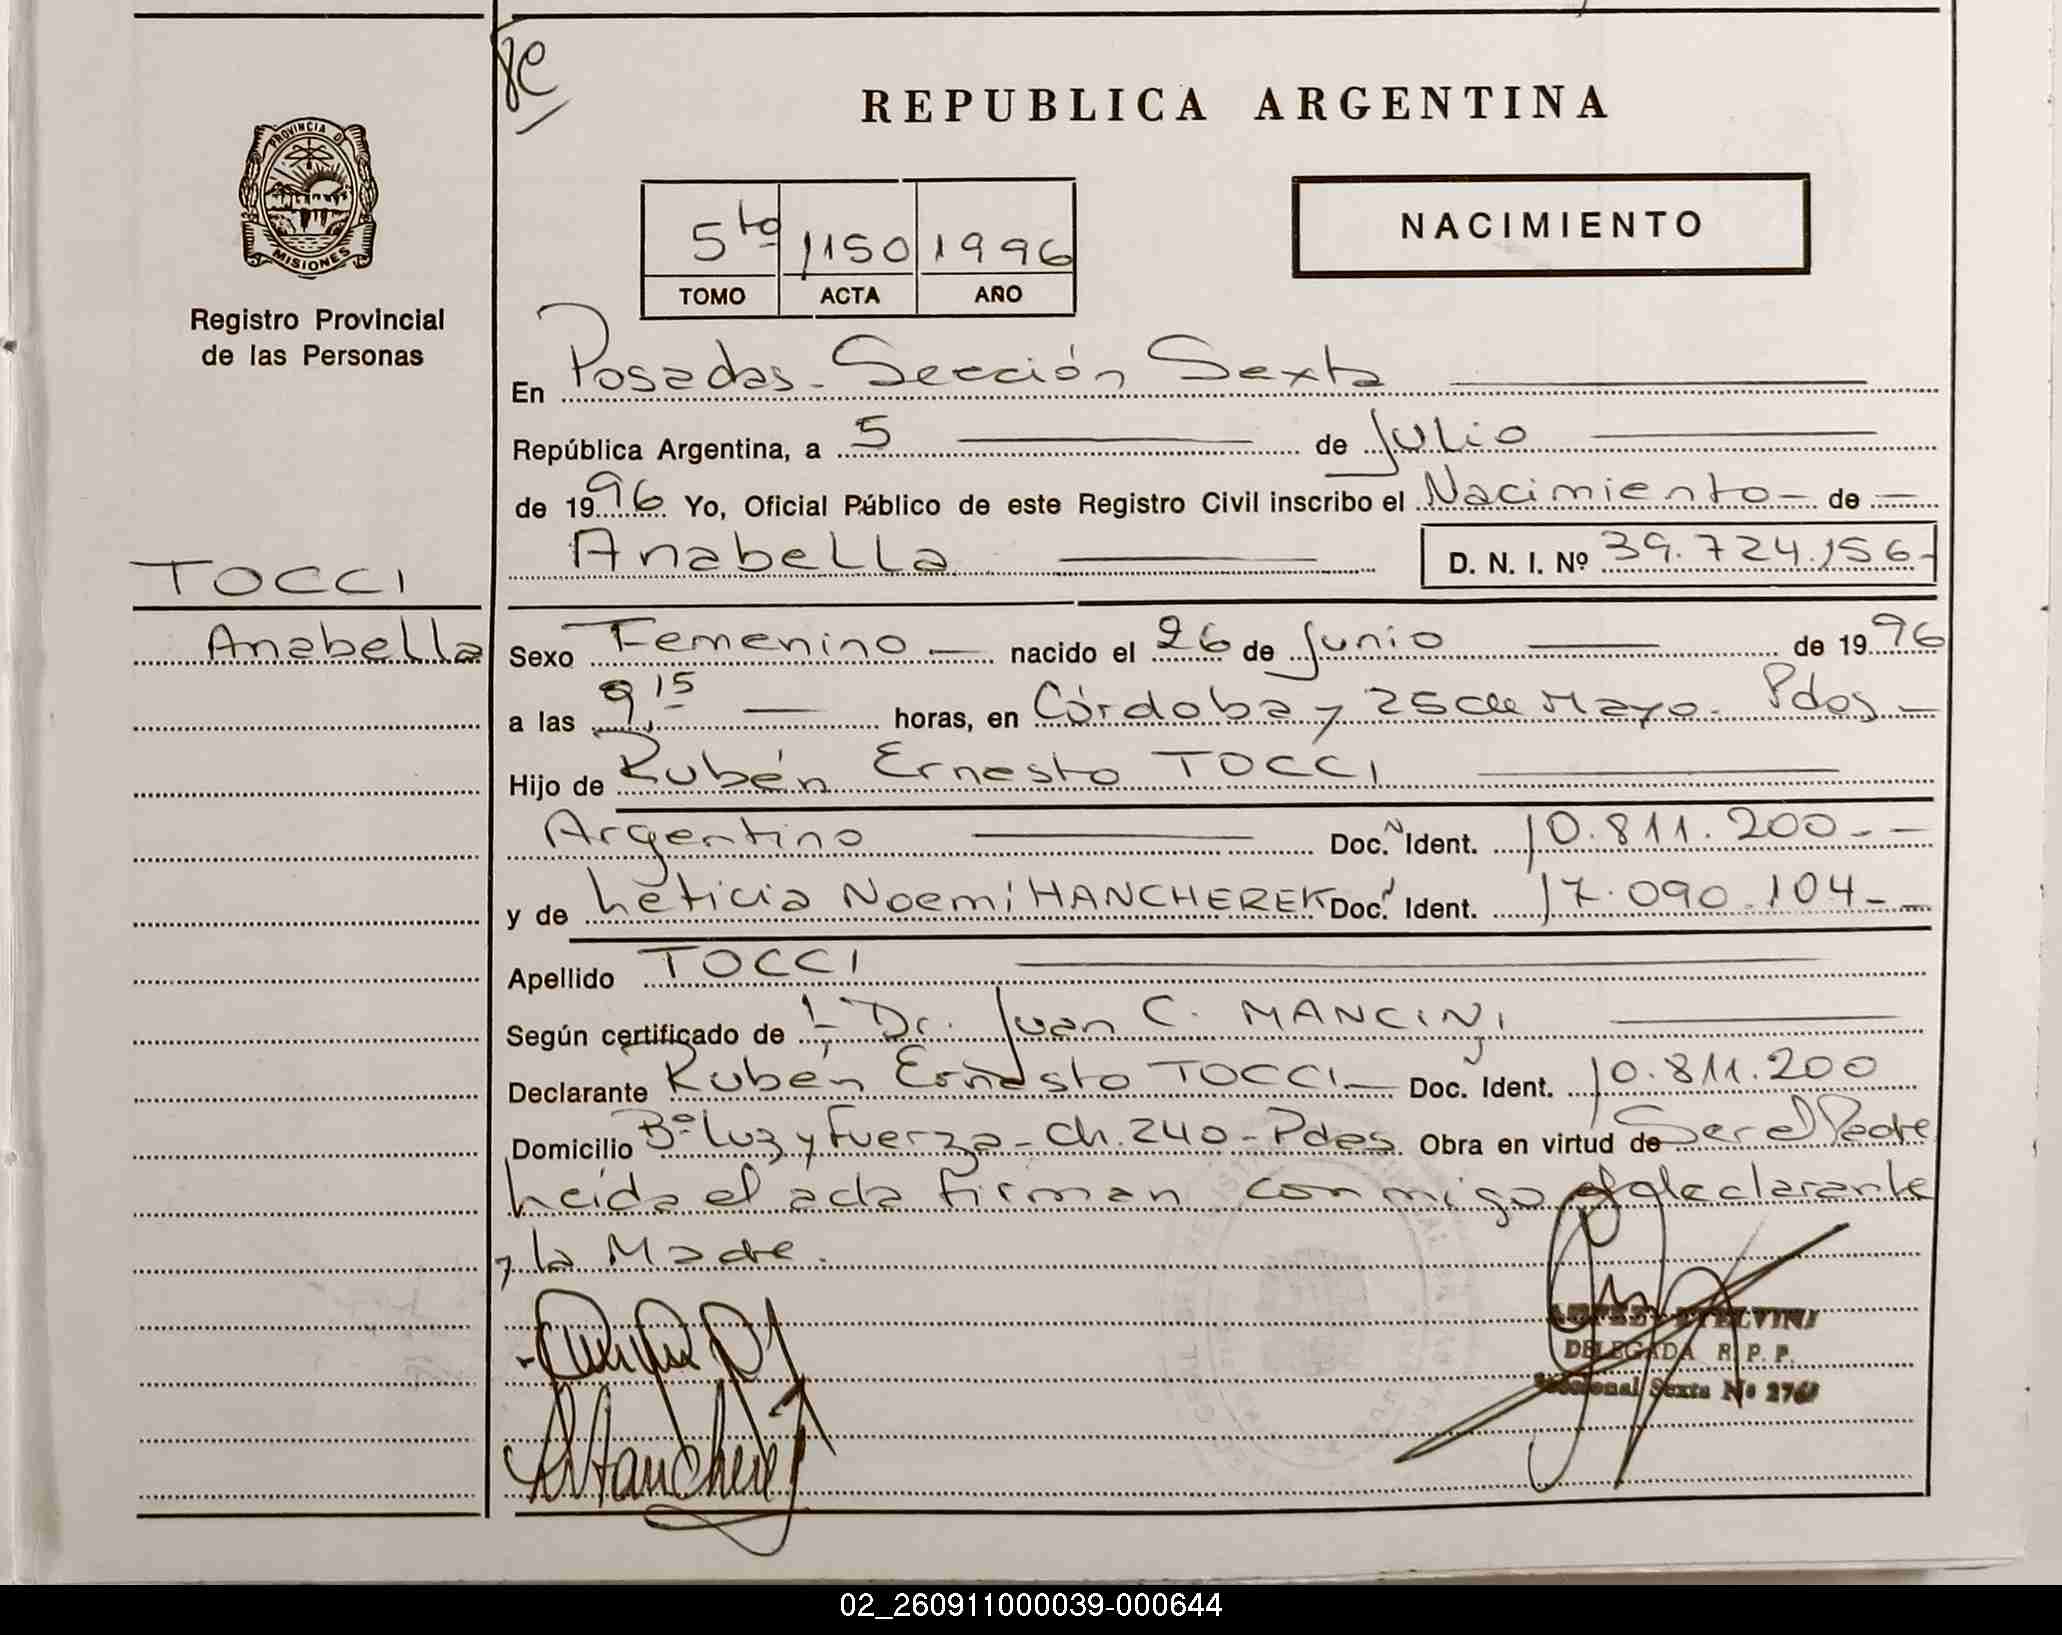 REPUBLICA ARGENTINA
PROVINCIA D
MISIONES
Registro Provincial
de las Personas
5to 1150 1996
TOMO ACTA AÑO
NACIMIENTO
En Posadas - Sección Sexta
República Argentina, a 5 de Julio
de 1996 Yo, Oficial Público de este Registro Civil inscribo el Nacimiento - de
Anabella D. N. I. Nº 39.724.156-
TOCCI
Anabella
Sexo Femenino - nacido el 26 de Junio de 1996
a las 9,15 horas, en Córdoba y 25 de Mayo. Pdas -
Hijo de Rubén Ernesto TOCCI
Argentino Doc. Ident. 10.811.200.-
y de Leticia Noemí HANCHEREK Doc. Ident. 17.090.104-
Apellido TOCCI
Según certificado de : Dr. Juan C. MANCINI
Declarante Rubén Ernesto TOCCI - Doc. Ident. 10.811.200
Domicilio Bº Luz y Fuerza - Ch. 240 - Pdas. Obra en virtud de Ser el Padre
Leída el acta firman conmigo el declarante
y la Madre.
DELEGADA R. P. P.
Seccional Sexta Nº 276
02_260911000039-000644